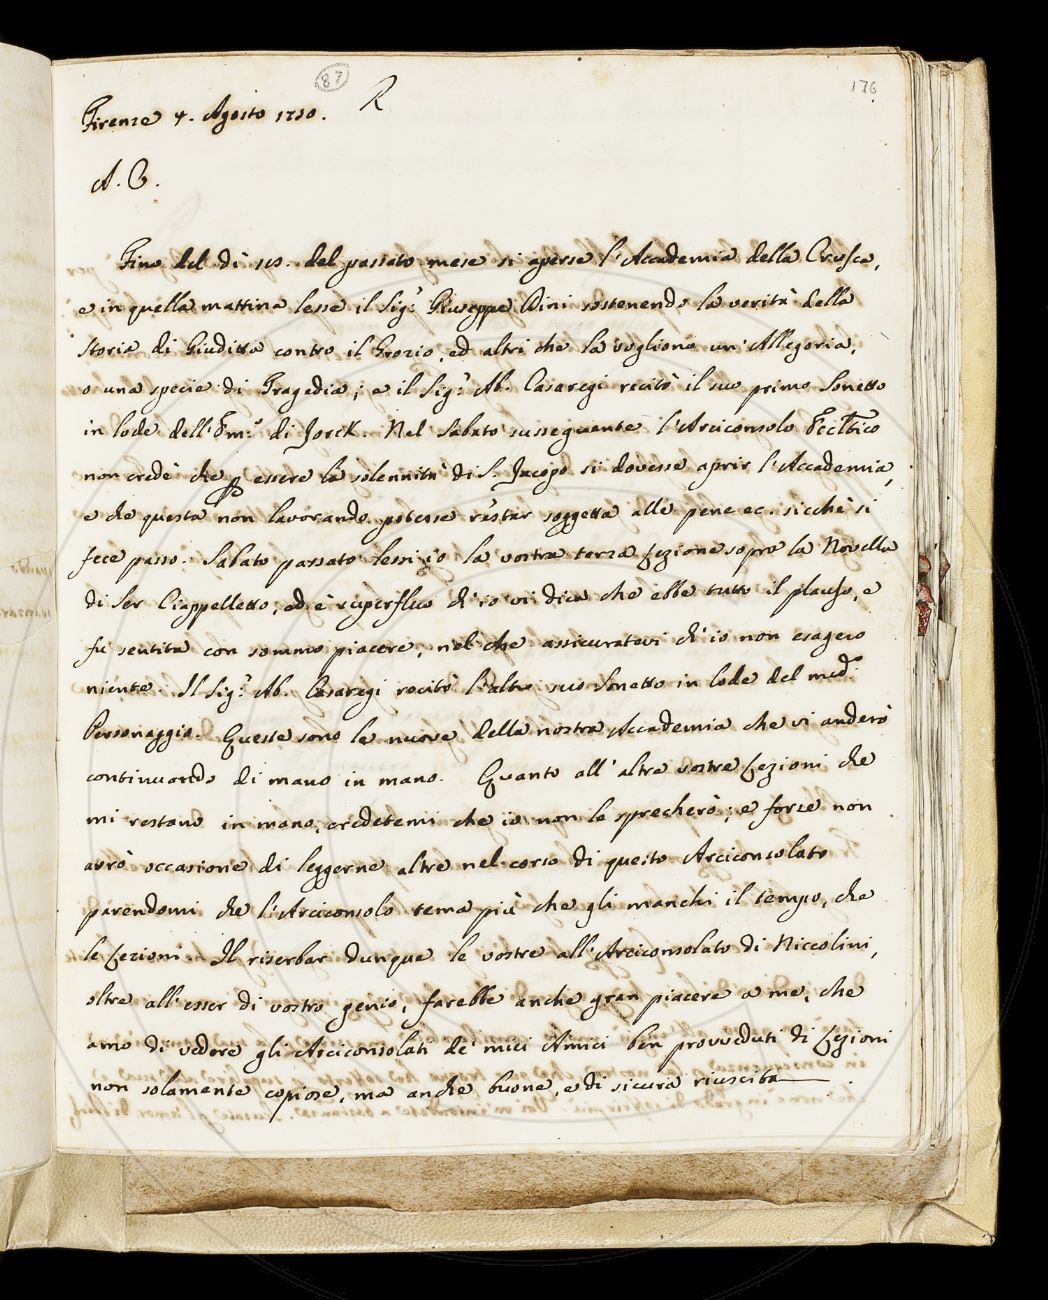 87 R 176
Firenze 4. Agosto 1750.
A. C.
Fino dal dì 18. del passato mese si aperse l'Accademia della Crusca,
e in quella mattina lesse il Sig.r Giuseppe Bini sostenendo la verità della
storia di Giuditta contro il Grozio, ed altri che la vogliono un'Allegoria,
o una specie di Tragedia; e il Sig.r Ab. Casaregi recitò il suo primo Sonetto
in lode dell'Em.o di Jorck. Nel Sabato susseguente l'Arciconsolo
non credè che p essere la solennità di S. Jacopo si dovesse aprir l'Accademia,
e che questa non lavorando potesse restar soggetta alle pene ec. sicchè si
fece passo. Sabato passato lessi io la vostra terza Lezione sopra la Novella
di Ser Ciappelletto, ed è superfluo ch'io vi dica che ebbe tutto il plauso, e
fu sentita con sommo piacere, nel che assicuratevi ch'io non esagero
niente. Il Sig.r Ab. Casaregi recitò l'altro suo Sonetto in lode del med.o
Personaggio. Queste sono le nuove della nostra Accademia che vi anderò
continuando di mano in mano. Quanto all'altre vostre Lezioni che
mi restano in mano, credetemi che io non le sprecherò; e forse non
avrò occasione di leggerne altre nel corso di questo Arciconsolato
parendomi che l'Arciconsolo tema più che gli manchi il tempo, che
le Lezioni. Il riserbar dunque le vostre all'Arciconsolato di Niccolini,
oltre all'esser di vostro genio, farebbe anche gran piacere a me, che
amo di vedere gli Arciconsolati de' miei Amici ben provveduti di Lezioni
non solamente copiose, ma anche buone, e di sicura riuscita